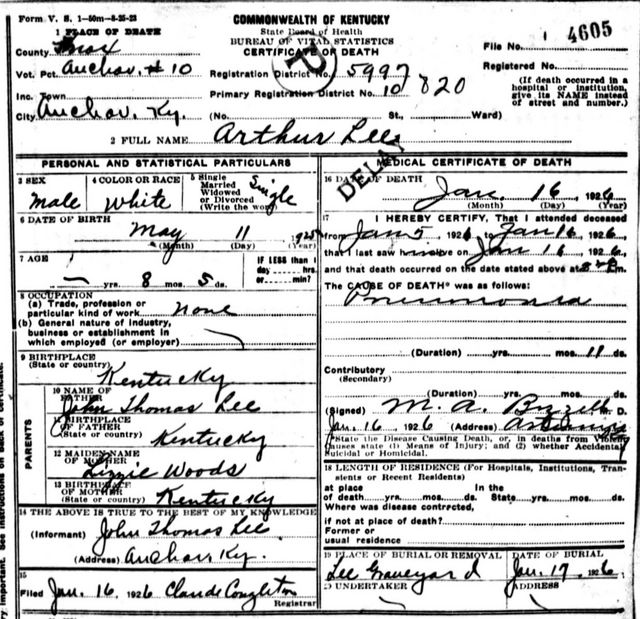 Form V. S. 1-50m-8-25-23
COMMONWEALTH OF KENTUCKY
State Board of Health
BUREAU OF VITAL STATISTICS
CERTIFICATE OF DEATH
P
1 PLACE OF DEATH
County Knox
Vot. Pct. Anchor #10
Inc. Town
City Anchor, Ky.
Registration District No. 5997
Primary Registration District No. 10 820
(No. St., Ward)
File No. 1 4605
Registered No.
(If death occurred in a hospital or institution, give its NAME instead of street and number.)
2 FULL NAME Arthur Lee
DELAYED
PERSONAL AND STATISTICAL PARTICULARS
3 SEX
Male
4 COLOR OR RACE
White
5 Single
Married
Widowed
or Divorced
(Write the word)
Single
6 DATE OF BIRTH
May 11, 1925
(Month) (Day) (Year)
7 AGE
— yrs. 8 mos. 5 ds.
IF LESS than 1
day hrs.
or min?
8 OCCUPATION
(a) Trade, profession or
particular kind of work none
(b) General nature of industry,
business or establishment in
which employed (or employer)
9 BIRTHPLACE
(State or country) Kentucky
PARENTS
10 NAME OF
FATHER
John Thomas Lee
11 BIRTHPLACE
OF FATHER
(State or country) Kentucky
12 MAIDEN NAME
OF MOTHER
Lizzie Woods
13 BIRTHPLACE
OF MOTHER
(State or country) Kentucky
14 THE ABOVE IS TRUE TO THE BEST OF MY KNOWLEDGE
(Informant) John Thomas Lee
(Address) Anchor Ky.
15
Filed Jan. 16, 1926 Claude Congleton
Registrar
MEDICAL CERTIFICATE OF DEATH
16 DATE OF DEATH
Jan. 16, 1926
(Month) (Day) (Year)
17 I HEREBY CERTIFY, That I attended deceased
from Jan 5, 1926 to Jan 16, 1926,
that I last saw alive on Jan 16, 1926
and that death occurred on the date stated above at m.
The CAUSE OF DEATH* was as follows:
Pneumonia
(Duration) yrs. mos. 11 ds.
Contributory
(Secondary)
(Duration) yrs. mos. ds.
(Signed) M. A. M. D.
Jan. 16, 1926 (Address)
*State the Disease Causing Death, or, in deaths from Violent
Causes state (1) Means of Injury; and (2) whether Accidental
Suicidal or Homicidal.
18 LENGTH OF RESIDENCE (For Hospitals, Institutions, Tran-
sients or Recent Residents)
at place In the
of death yrs. mos. ds. State yrs. mos. ds.
Where was disease contracted,
if not at place of death?
Former or
usual residence
19 PLACE OF BURIAL OR REMOVAL
Lee Graveyard
DATE OF BURIAL
Jan. 17, 1926
20 UNDERTAKER
ADDRESS